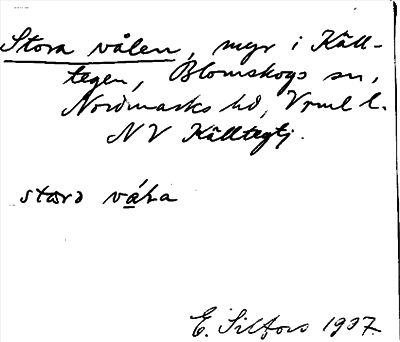 Stora vålen, myr i Käll-
tegen, Blomskogs sn,
Nordmarks hd, Vrml l.
NV Källtegtj.
E. Silfors 1937.